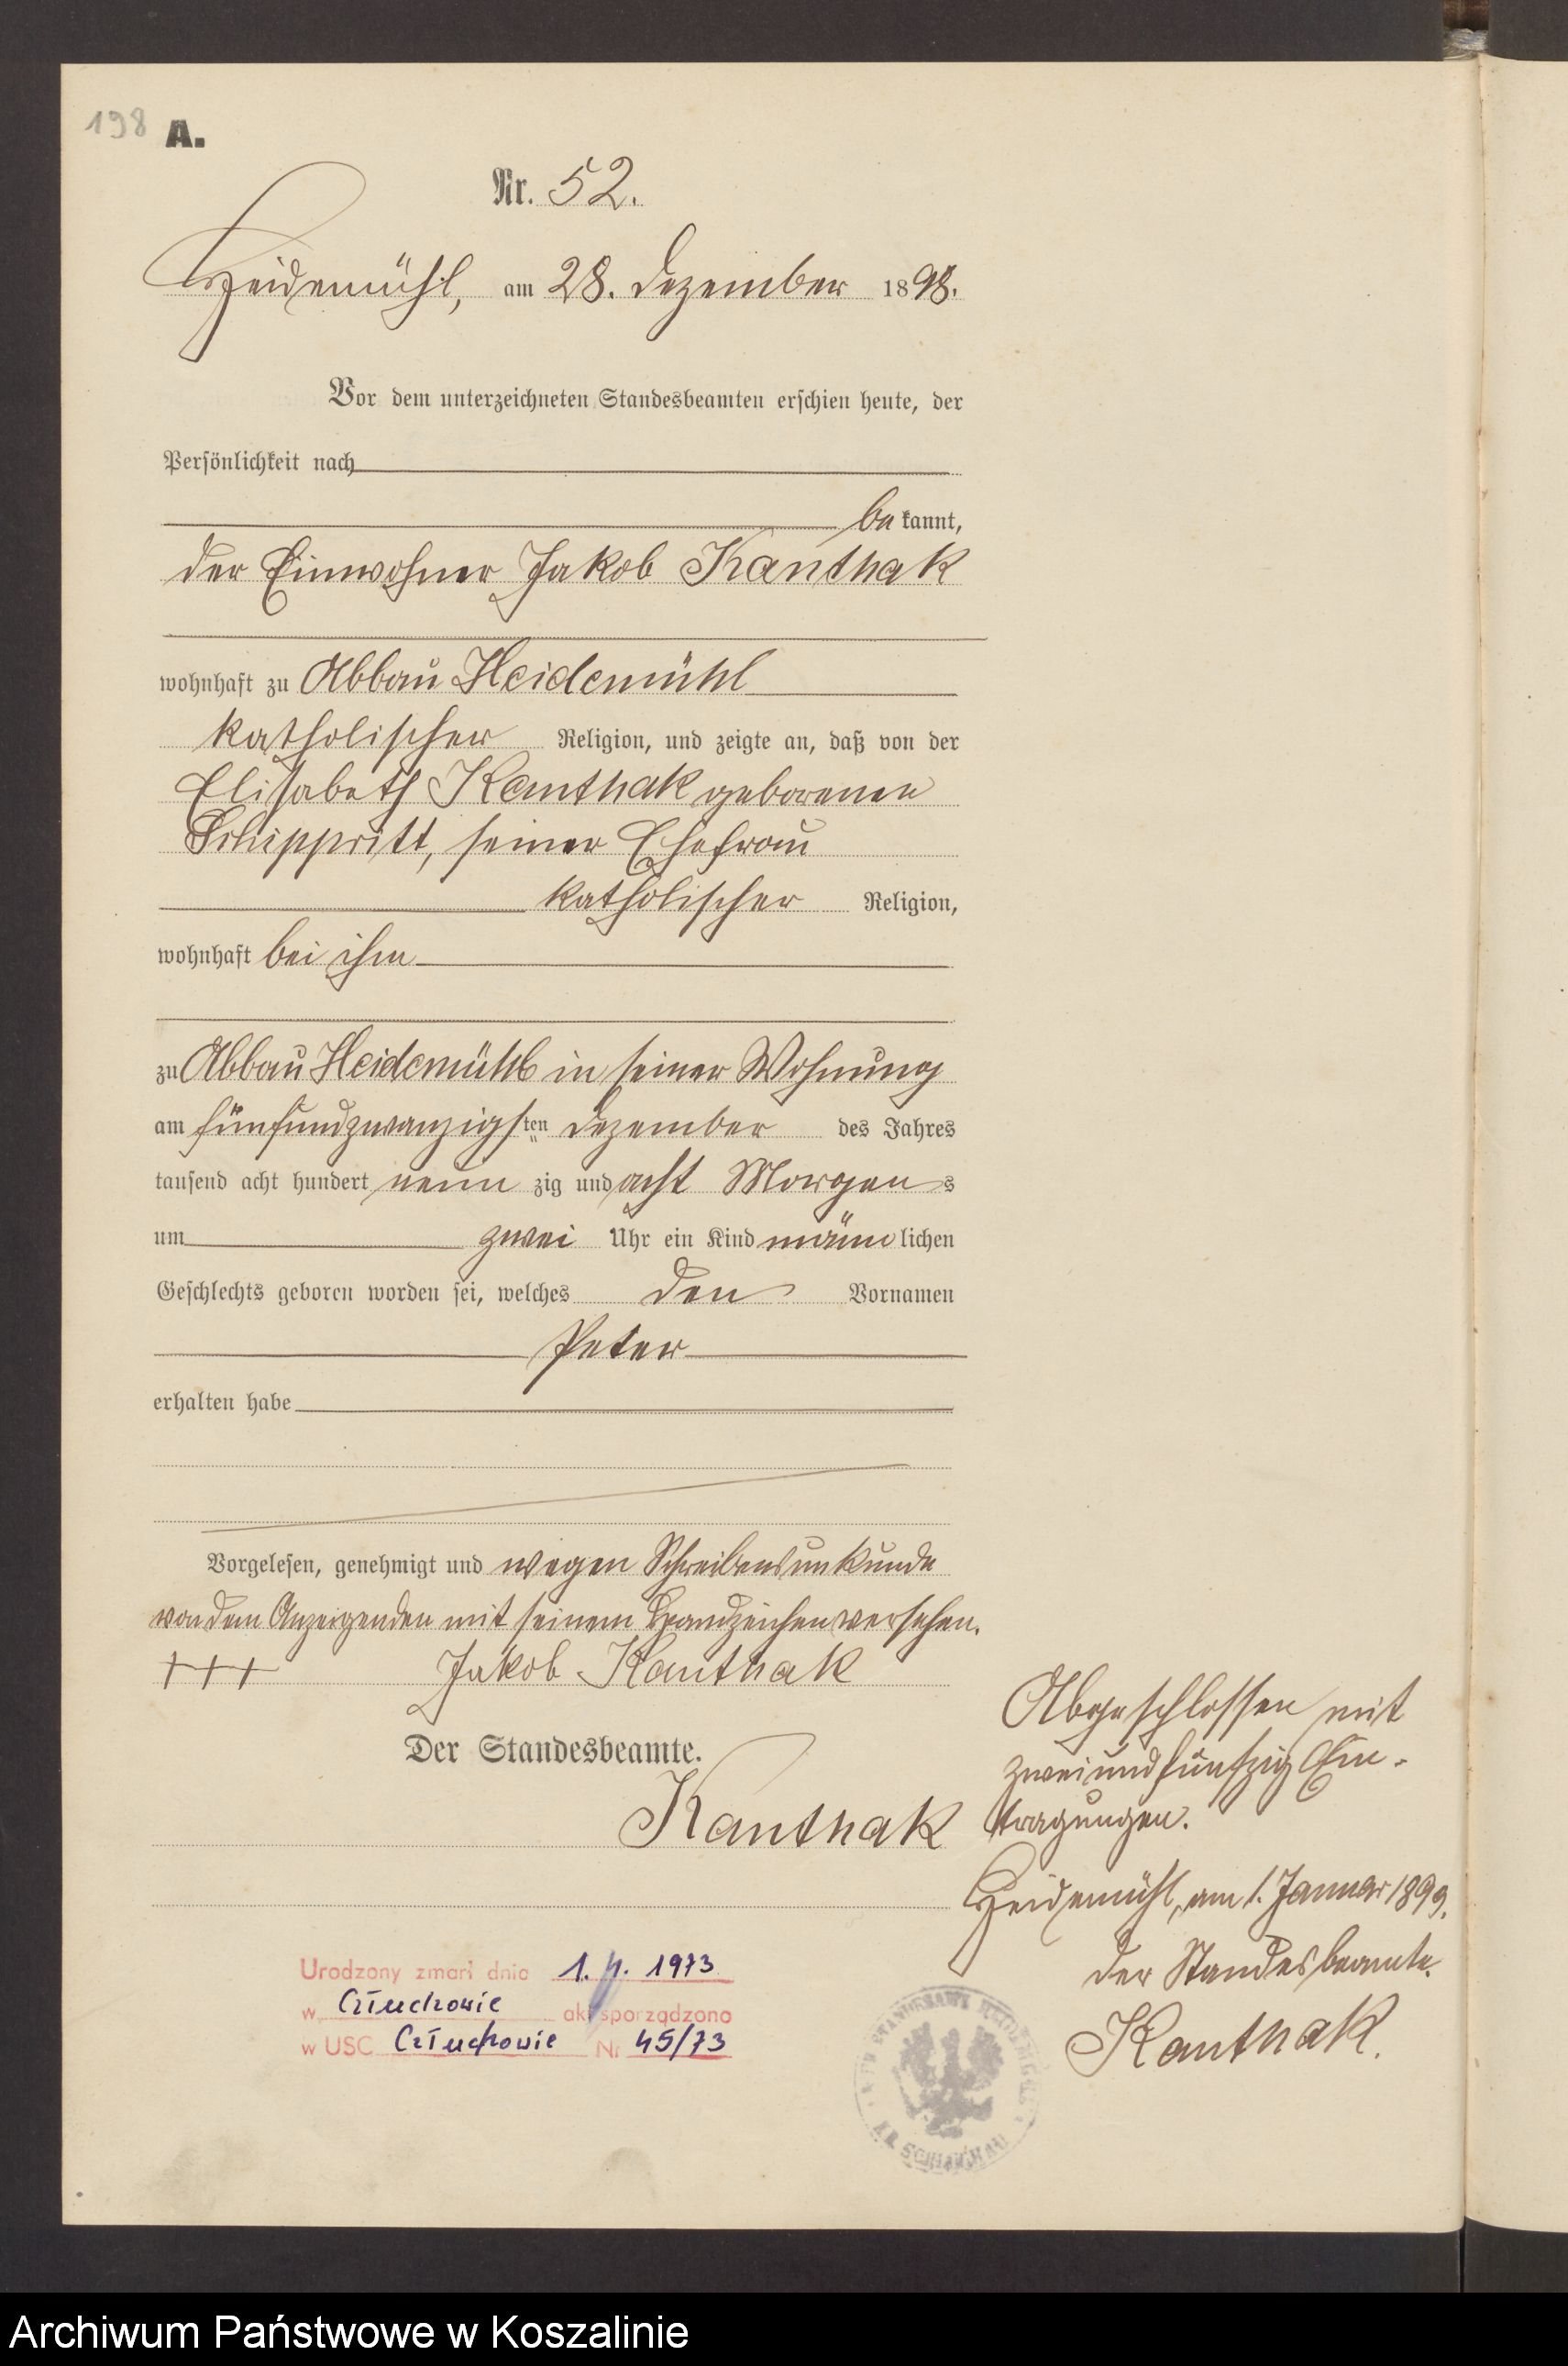 198 A.
Nr. 52.
Heidemühl, am 28. Dezember 1898.
Vor dem unterzeichneten Standesbeamten erschien heute, der
Persönlichkeit nach
bekannt,
der Einwohner Jakob Kanthak
wohnhaft zu Abbau Heidemühl
katholischer Religion, und zeigte an, daß von der
Elisabeth Kanthak geborenen
Schippritt, seiner Ehefrau
katholischer Religion,
wohnhaft bei ihm
zu Abbau Heidemühl in seiner Wohnung
am fünfundzwanzigsten Dezember des Jahres
tausend acht hundert neunzig und acht Morgens
um zwei Uhr ein Kind männlichen
Geschlechts geboren worden sei, welches den Vornamen
Peter
erhalten habe
Vorgelesen, genehmigt und wegen Schreibensunkunde
von dem Anzeigenden mit seinem Handzeichen versehen.
+++ Jakob Kanthak
Der Standesbeamte.
Kanthak
Abgeschlossen mit
zweiundfünfzig Ein-
tragungen.
Heidemühl, am 1. Januar 1899.
Der Standesbeamte.
Kanthak.
Urodzony zmarł dnia 1. 4. 1973
w Człuchowie akt sporządzono
w USC Człuchowie Nr 45/73
KR. SCHLOCHAU
Archiwum Państwowe w Koszalinie